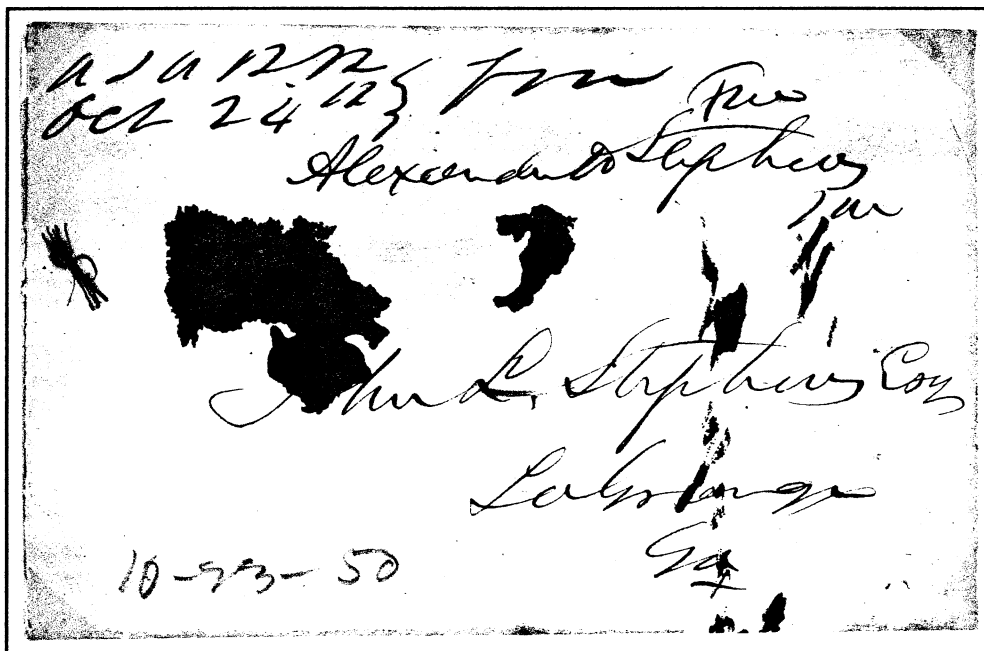 Oct 24
Free
Alexander H Stephens
John L. Stephens Esq
LaGrange
Ga
10-23-50